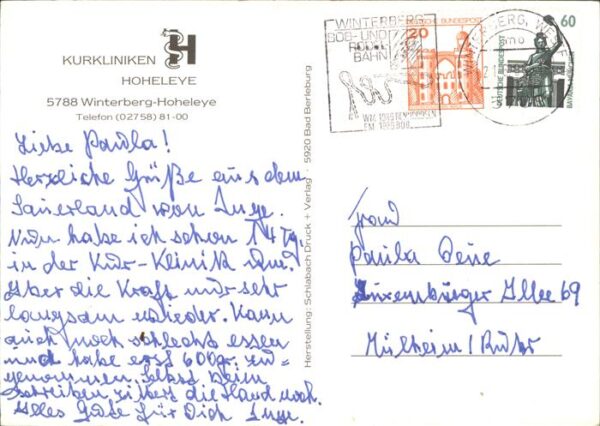 KURKLINIKEN H
HOHELEYE
5788 Winterberg-Hoheleye
Telefon (02758) 81-00
Liebe Paula!
Herzliche Grüße aus dem
Sauerland von Inge.
Nun habe ich schon 14 Tg.
in der Kur-Klinik
Aber die Kraft nur sehr
langsam wieder. Kann
auch noch schlecht essen
und habe erst 600gr. zu-
genommen. Selbst beim
schreiben zittert die Hand noch.
Alles Gute für Dich Inge.
Herstellung: Schlabach Druck + Verlag 5920 Bad Berleburg
WINTERBERG
BOB- UND
RODEL
BAHN
DEUTSCHE BUNDESPOST
20
WINTERBERG, WESTF
60
DEUTSCHE BUNDESPOST
Frau
Paula
Luxemburger Allee 69
Mülheim/Ruhr